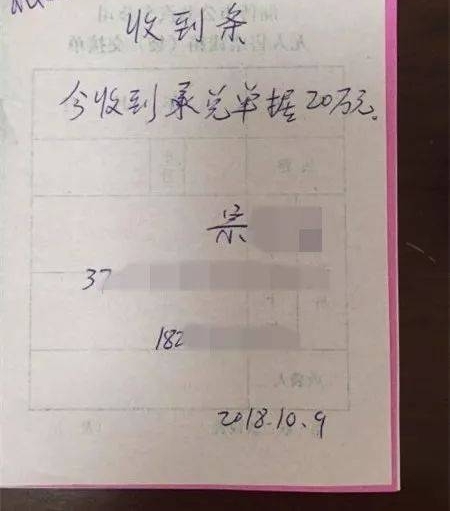 收到条
今收到承兑单据20万元。
宗
37
182
2018.10.9